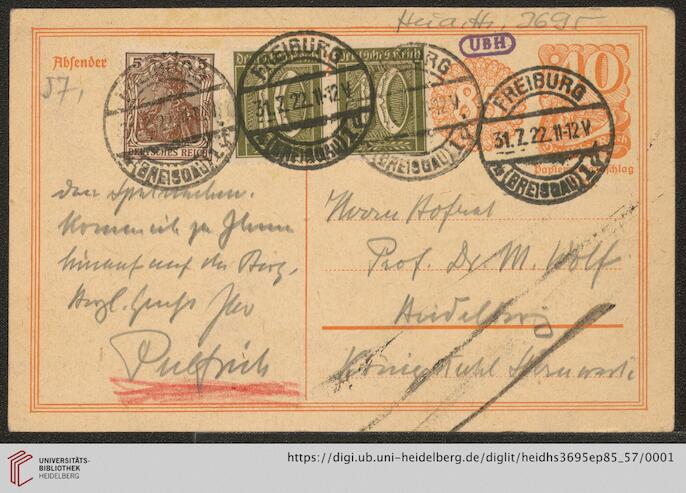 Heid. Hs. 3695
UBH
57,
Absender
5 5
DEUTSCHES REICH
Deutsches Reich
10
FREIBURG
31.7.22.11-12V
(BREISGAU)
FREIBURG
31.7.22.11-12V
(BREISGAU)
Papier
schlag
Herrn Hofrat
Prof. Dr. M. Wolf
Heidelberg
Königstuhl Sternwarte
Komme ich zu Ihnen
hinauf auf den Berg.
Herzl. Gruß Ihr
Pulfrich
UNIVERSITÄTS-
BIBLIOTHEK
HEIDELBERG
https://digi.ub.uni-heidelberg.de/diglit/heidhs3695ep85_57/0001